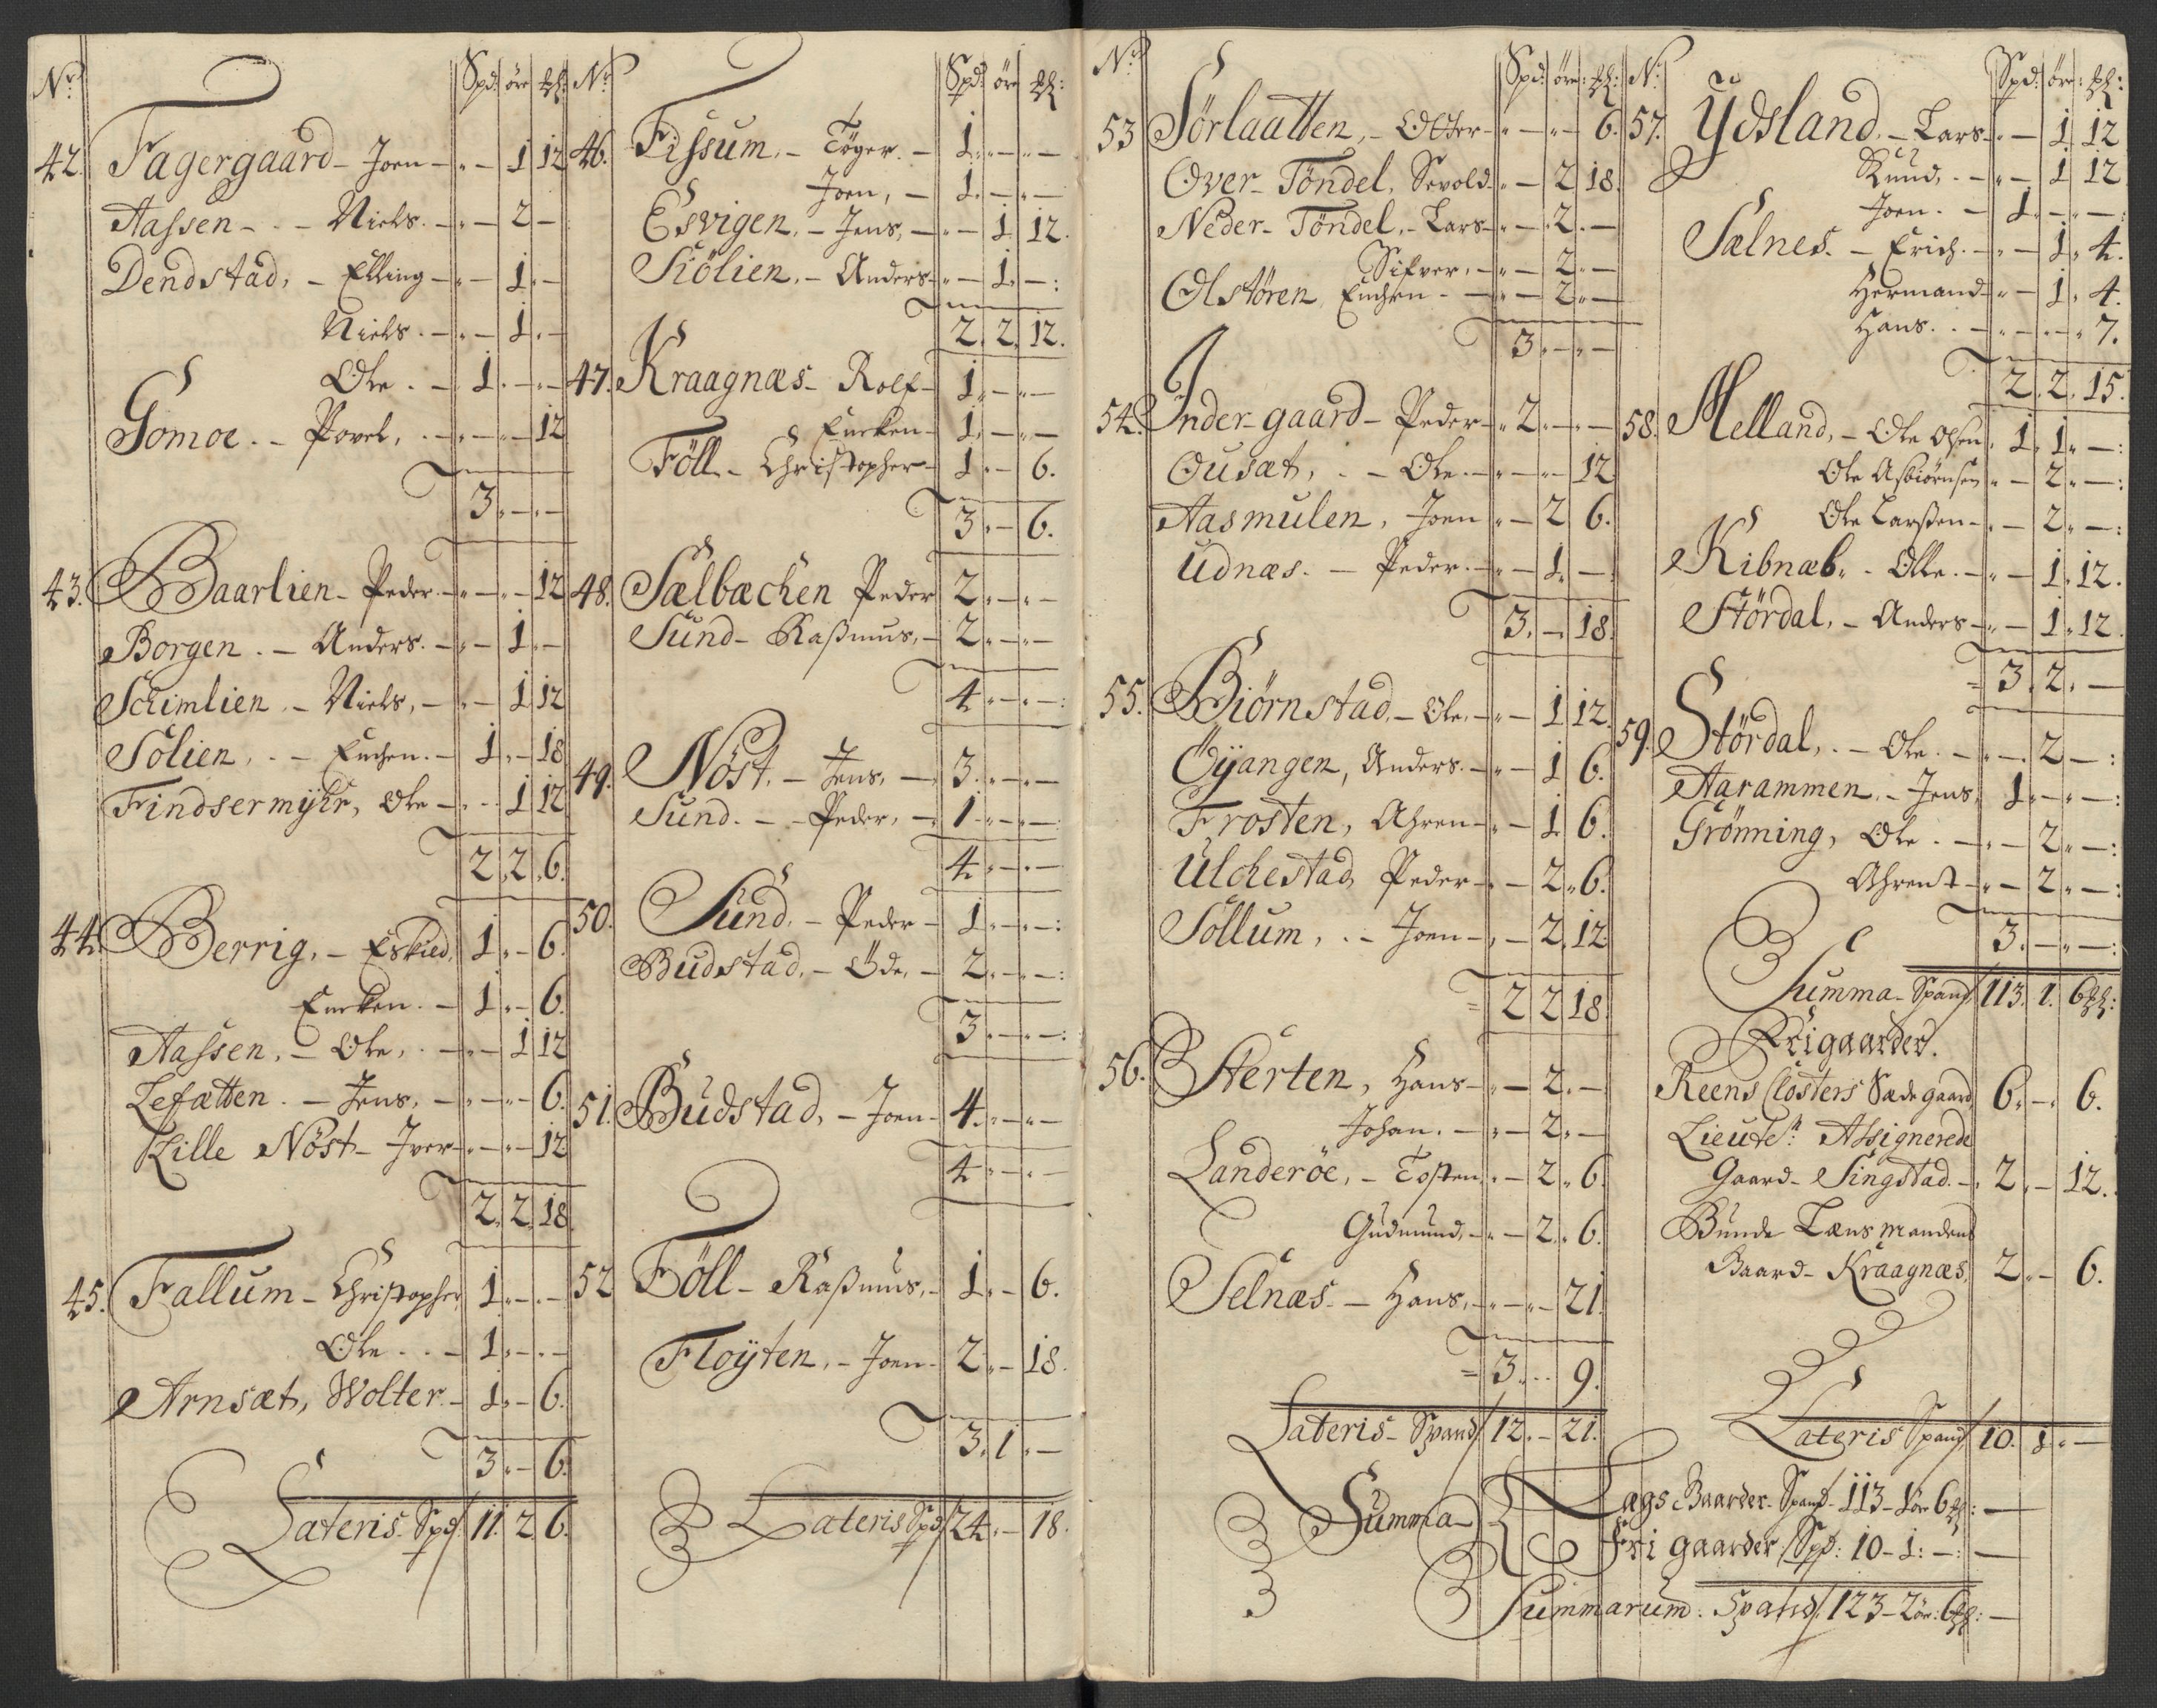 Nr. Spd: öre ₰:
42. Fagergaard - Joen - " - 1 12
Aassen - - Niels. - " - 2 -
Dendstad, - Elling - " - 1. -
Niels. - " - 1. -
Ole. - 1. - " -
Gomoe. - Povel, . - " - " - 12
3. - " -
43. Baarlien - Peder. - " - " - 12
Borgen. - Anders. - " - 1. -
Schimlien. - Niels, - " - 1 12
Solien, . - Euchen. - 1. - 18
Findsermyhr, Ole - " - 1 12
2. 2. 6.
44. Berrig, - Eskild, 1. - 6.
Encken. - 1. - 6.
Aassen, - Ole, . - " - 1 12
Lefætten. - Jens, - " - " - 6.
Lille Nöst - Iver - " - " - 12
2. 2. 18.
45. Fallum - Christopher 1. - " -
Ole . . - 1. - " -
Arnsæt, Wolter - 1. - 6.
3. - 6.
Lateris Spd: 11. 2 6.
Nr. Spd: öre ₰:
46. Fissum. - Töger. - 1. - " -
Joen, - 1. - " -
Esvigen, - Jens, - " - 1. 12.
Siölien, - Anders - " - 1. - :
2. 2. 12.
47. Kraagnæs - Rolf - 1. - " -
Encken - 1. - " -
Föll - Christopher - 1. - 6.
3. - 6.
48. Sælbæchen Peder 2. - " -
Sund - Rasmus, - 2. - " -
4. - " - :
49. Nöst, - Jens, - 3. - " -
Sund. - - Peder, - 1. - " -
4. - " -
50. Sund, - Peder - 1. - " - :
Budstad, - Öde, - 2. - " - :
3. - " - :
51. Budstad, - Joen - 4. - " -
4. - " -
52 Föll - Rasmus, - 1. - 6.
Floyten, - Joen - 2. - 18.
3. 1. -
Lateris Spd 24. - 18.
Nr. Spd: öre: ₰:
53 Sörlaatten, - Olter - " - " - 6.
Over - Töndel, Sevold - " - 2 18.
Neder - Töndel, - Lars - " - 2. -
Sifver, - " - 2. -
Olstören Euchen - - " - 2. -
3. - " -
54. Inder-gaard - Peder - " 2. - " -
Ousæt, . - Ole. - " - " - 12
Aasmulen, Joen " - 2 6.
Udnæs. - Peder. - " - 1. - :
3. - 18.
55. Biörnstad, - Ole, - " - 1 12
Öyangen, Anders. - " - 1 6.
Frosten, Ahren - " - 1 6.
Ulchestad, Peder - " - 2. 6.
Sollum, . - Joen - " - 2. 12
= 2 2 18.
56. Sterten, Hans - " - 2. -
Johan. - " - 2. -
Landeröe, - Tosten, " - 2. 6.
Gudmund, - " - 2. 6.
Selnæs. - Hans, - " - " - 21.
= 3. . . 9.
Lateris - Spand 12. - 21.
Nr.
Spd: öre: ₰:
57. Ydsland. - Lars - " - 1. 12
Knud, - " - 1. 12
Joen. - 1. - " - :
Sælnes. - Erich. - " - 1. 4.
Hermand - " - 1. 4.
Hans. . - " - " - 7.
2. 2. 15.
58. Melland, - Ole Olsen, 1. 1. - :
Ole Asbiörnsen " - 2. - :
Ole Larssen - " - 2. - :
Kibnæb, - Olle. - " - 1. 12.
Stördal, - Anders - " - 1. 12.
= 3. 2. -
59. Stördal, . - Ole. - " - 2 - :
Aarammen. - Jens, 1. - " - :
Grönning, Ole. - " - 2. - :
Ahrent - " - 2. - :
3. - " - :
Summa - Spand 113. 1. 6 ₰:
Frigaarder.
Reens Closters Sædegaard, 6. - 6.
Lieuten: Assignerede
Gaard - Singstad. - 2. - 12.
Bunde Lænsmandens
Gaard - Kraagnæs, 2. - 6.
Lateris Spand 10. 1. -
Summa
Lægs Gaarder - Spand - 113 - 1 ör 6 ₰: -
Fri gaarder Spd: 10 - 1: - : -
Summarum: Spand: 123 - 2 ör: 6 ₰: -